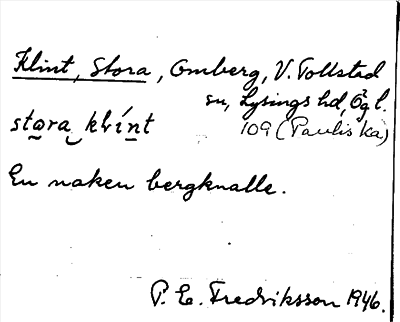 Klint, Stora, Omberg, V. Tollstad
sn, Lysings hd, Ög l.
stora klínt 109 (Paulis ka)
En naken bergknalle.
P. E. Fredriksson 1946.